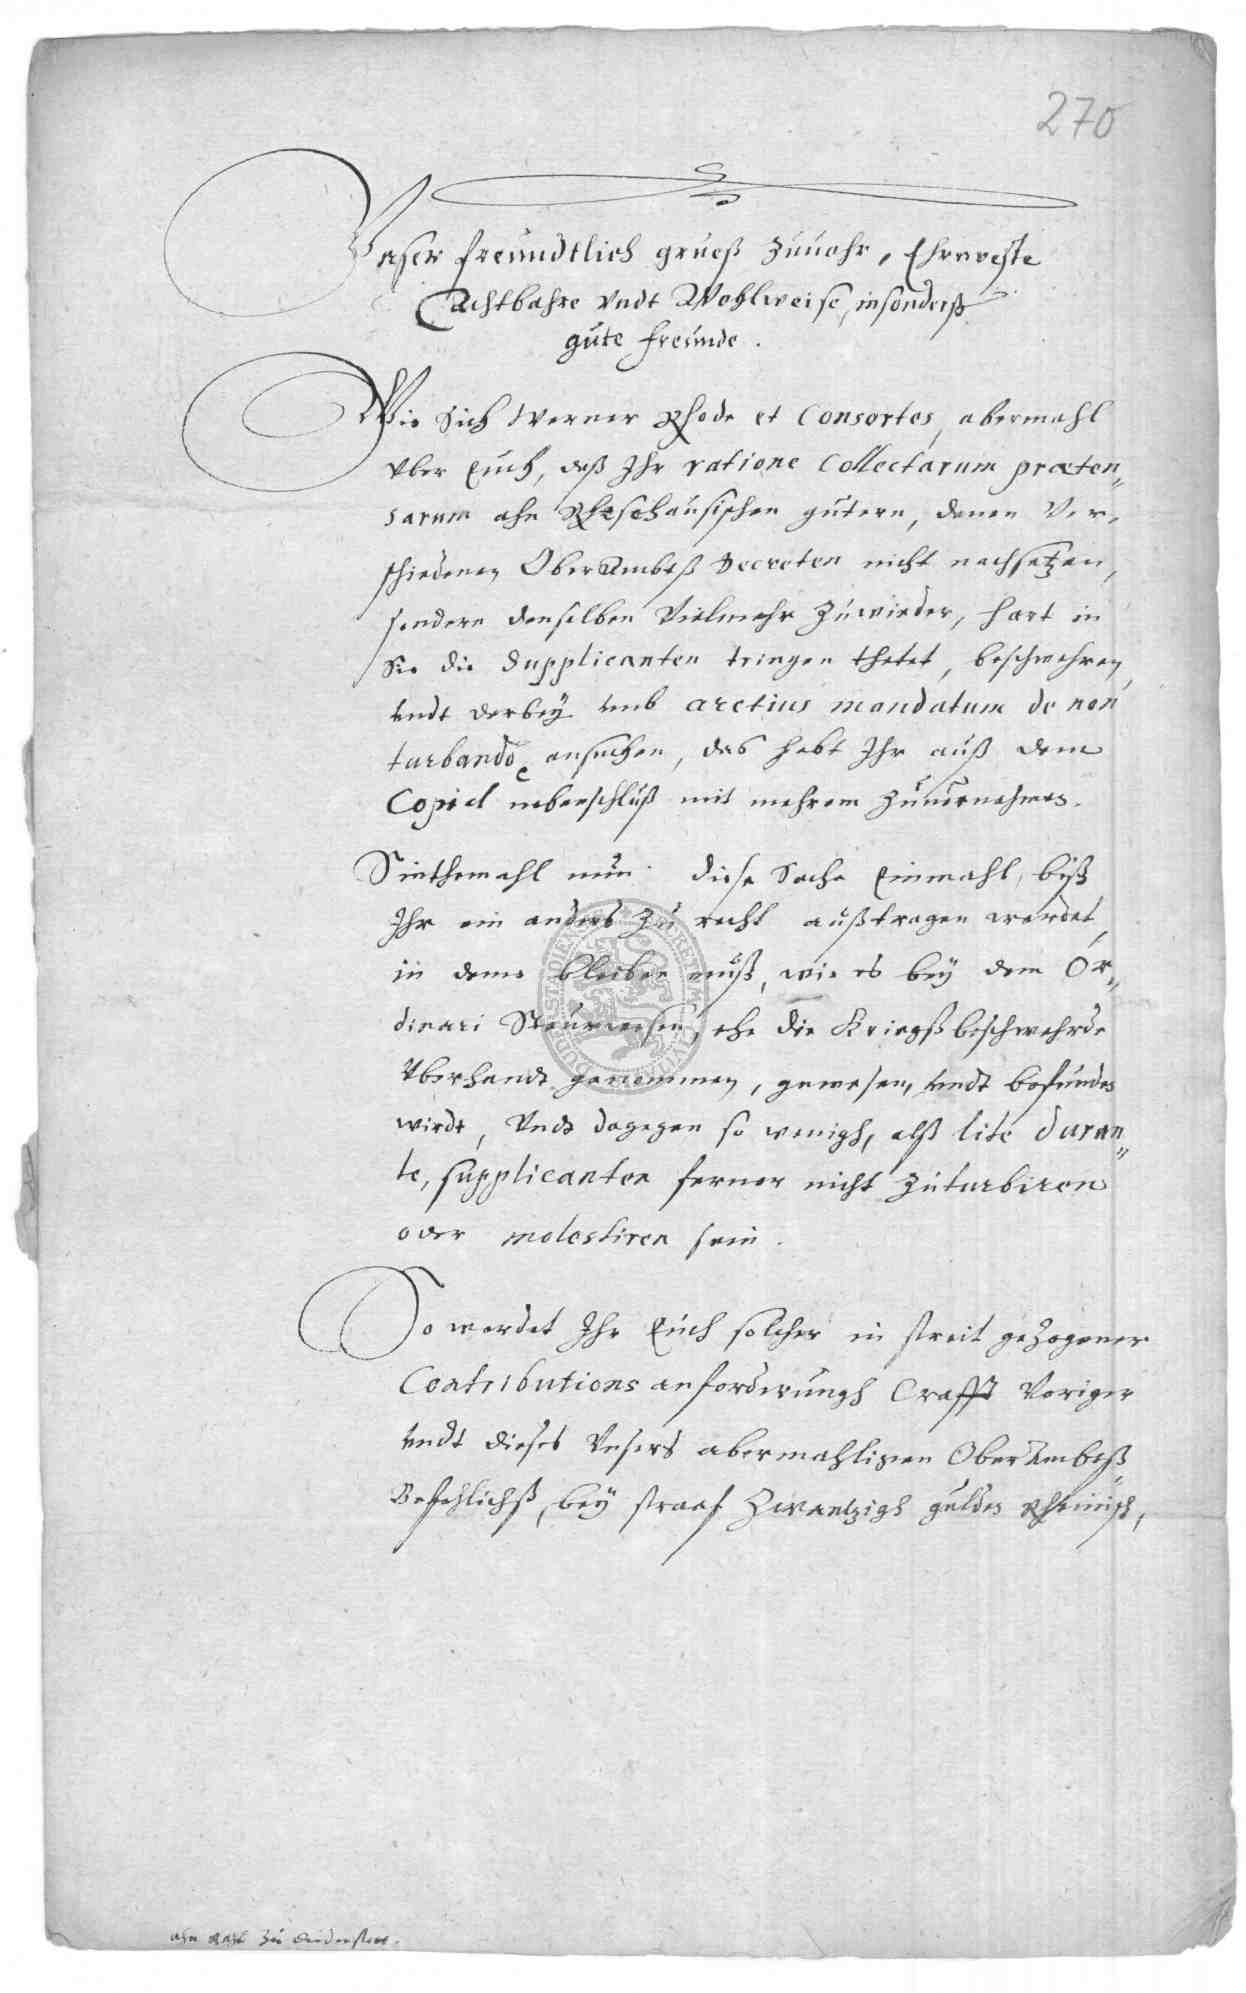 270
Vnser freundtlich grueß zuuohr, Ehrnveste
Achtbahre vndt Wohlweise, insonderß
gute freunde.
Wie sich Werner Rhode et Consortes, abermahl
vber Euch, daß Ihr ratione Collectarum præten„
sarum ahn güteren, denen Ver„
schiedenen OberAmbtß Decreten nicht nachsetzen,
sondern denselben vielmehr zuwieder, hart in
Sie die Supplicanten tringen thetet, beschwehren,
vndt darbey vmb arctius mandatum de non
turbando ansuchen, das habt Ihr auß dem
Copiel nebenschluß mit mehrem zuuernehmen.
Sinthemahl nun diese Sache Einmahl, biß
Ihr ein anders zu recht außtragen werdet,
in deme bleiben muß, wie es bey dem Or„
dinari Steurwesen, ehe die Kriegßbeschwehrde
vberhandt genommen, gewesen, vndt befunden
wirdt, Vndt dagegen so wenigh, alß lite duran„
te, supplicanten ferner nicht zuturbiren
oder molestiren sein.
So werdet Ihr Euch solcher in streit gezogener
Contributions anforderungh Crafft voriger
vndt dieses Vnsers abermahligen OberAmbtß
Befehlichß, bey straaf Zwantzigh gulden Rheinisch,
ahn Rath zu Duderstatt.